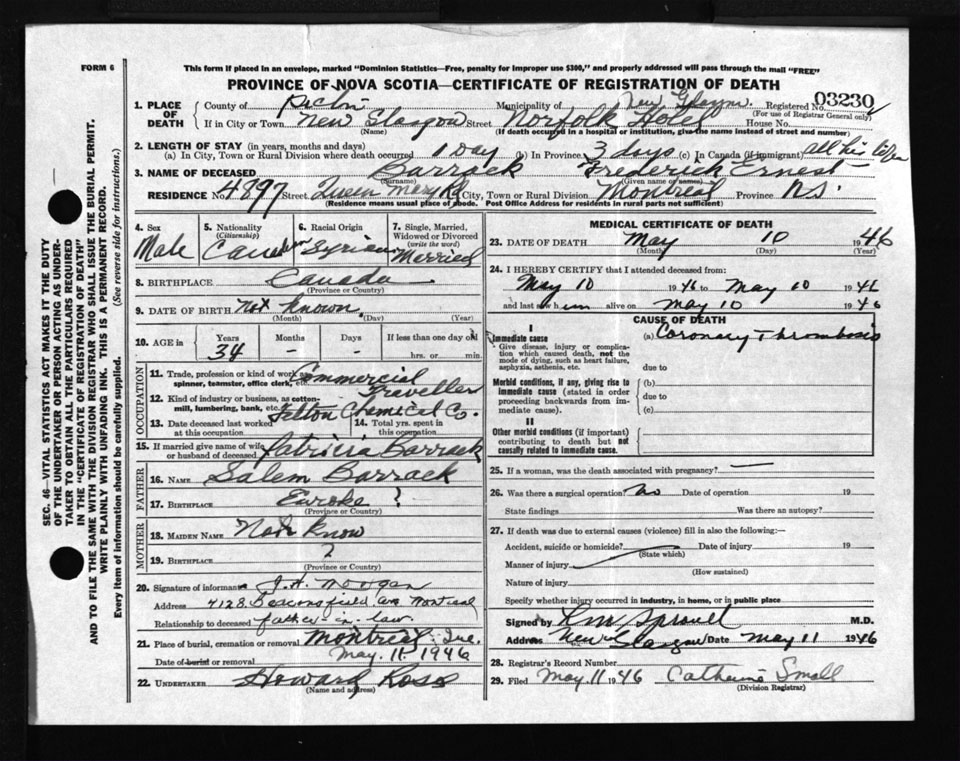 FORM 6
This form if placed in an envelope, marked "Dominion Statistics—Free, penalty for improper use $300," and properly addressed will pass through the mail "FREE"
PROVINCE OF NOVA SCOTIA—CERTIFICATE OF REGISTRATION OF DEATH
SEC. 46—VITAL STATISTICS ACT MAKES IT THE DUTY
OF THE UNDERTAKER OR PERSON ACTING AS UNDER-
TAKER TO OBTAIN ALL THE PARTICULARS REQUIRED
IN THE "CERTIFICATE OF REGISTRATION OF DEATH"
AND TO FILE THE SAME WITH THE DIVISION REGISTRAR WHO SHALL ISSUE THE BURIAL PERMIT.
WRITE PLAINLY WITH UNFADING INK. THIS IS A PERMANENT RECORD.
Every item of information should be carefully supplied. (See reverse side for instructions.)
1. PLACE OF DEATH
County of Pictou Municipality of New Glasgow Registered No. 03230
(For use of Registrar General only)
If in City or Town New Glasgow Street Norfolk Hotel House No.
(Name) (If death occurred in a hospital or institution, give the name instead of street and number)
2. LENGTH OF STAY (in years, months and days)
(a) In City, Town or Rural Division where death occurred 1 Day (b) In Province 3 days (c) In Canada (if immigrant) all his life
3. NAME OF DECEASED Barrack Frederick Ernest
(Surname) (Given name or names)
RESIDENCE No. 4897 Street Queen Mary Rd City, Town or Rural Division Montreal Province N.S.
(Residence means usual place of abode. Post Office Address for residents in rural parts not sufficient)
4. Sex
Male
5. Nationality
(Citizenship)
Canadian
6. Racial Origin
Syrian
7. Single, Married,
Widowed or Divorced
(write the word)
Married
8. BIRTHPLACE Canada
(Province or Country)
9. DATE OF BIRTH Not Known
(Month) (Day) (Year)
10. AGE in Years Months Days If less than one day old
34 - - hrs. or min.
OCCUPATION
11. Trade, profession or kind of work as
spinner, teamster, office clerk, etc. Commercial Traveller
12. Kind of industry or business, as cotton-
mill, lumbering, bank, etc. Felton Chemical Co.
13. Date deceased last worked
at this occupation
14. Total yrs. spent in
this occupation
15. If married give name of wife
or husband of deceased Patricia Barrack
FATHER
16. NAME Salem Barrack
17. BIRTHPLACE ?
(Province or Country)
MOTHER
18. MAIDEN NAME Not Know
19. BIRTHPLACE ?
(Province or Country)
20. Signature of informant J.A. Morgan
Address 4128 Beaconsfield Ave Montreal
Relationship to deceased father-in-law
21. Place of burial, cremation or removal Montreal Que.
Date of burial or removal May 11. 1946
22. UNDERTAKER Howard Ross
(Name and address)
MEDICAL CERTIFICATE OF DEATH
23. DATE OF DEATH May 10 1946
(Month) (Day) (Year)
24. I HEREBY CERTIFY that I attended deceased from:
May 10 1946 to May 10 1946
and last saw him alive on May 10 1946
CAUSE OF DEATH
I
Immediate cause
Give disease, injury or complica-
tion which caused death, not the
mode of dying, such as heart failure,
asphyxia, asthenia, etc.
(a) Coronary Thrombosis
due to
Morbid conditions, if any, giving rise to
immediate cause (stated in order
proceeding backwards from im-
mediate cause).
(b)
due to
(c)
II
Other morbid conditions (if important)
contributing to death but not
causally related to immediate cause.
25. If a woman, was the death associated with pregnancy? —
26. Was there a surgical operation? No Date of operation 19
State findings Was there an autopsy?
27. If death was due to external causes (violence) fill in also the following:—
Accident, suicide or homicide? Date of injury 19
(State which)
Manner of injury
(How sustained)
Nature of injury
Specify whether injury occurred in industry, in home, or in public place
Signed by Sproull M.D.
Address New Glasgow Date May 11 1946
28. Registrar's Record Number
29. Filed May 11 1946 Catherine Small
(Division Registrar)